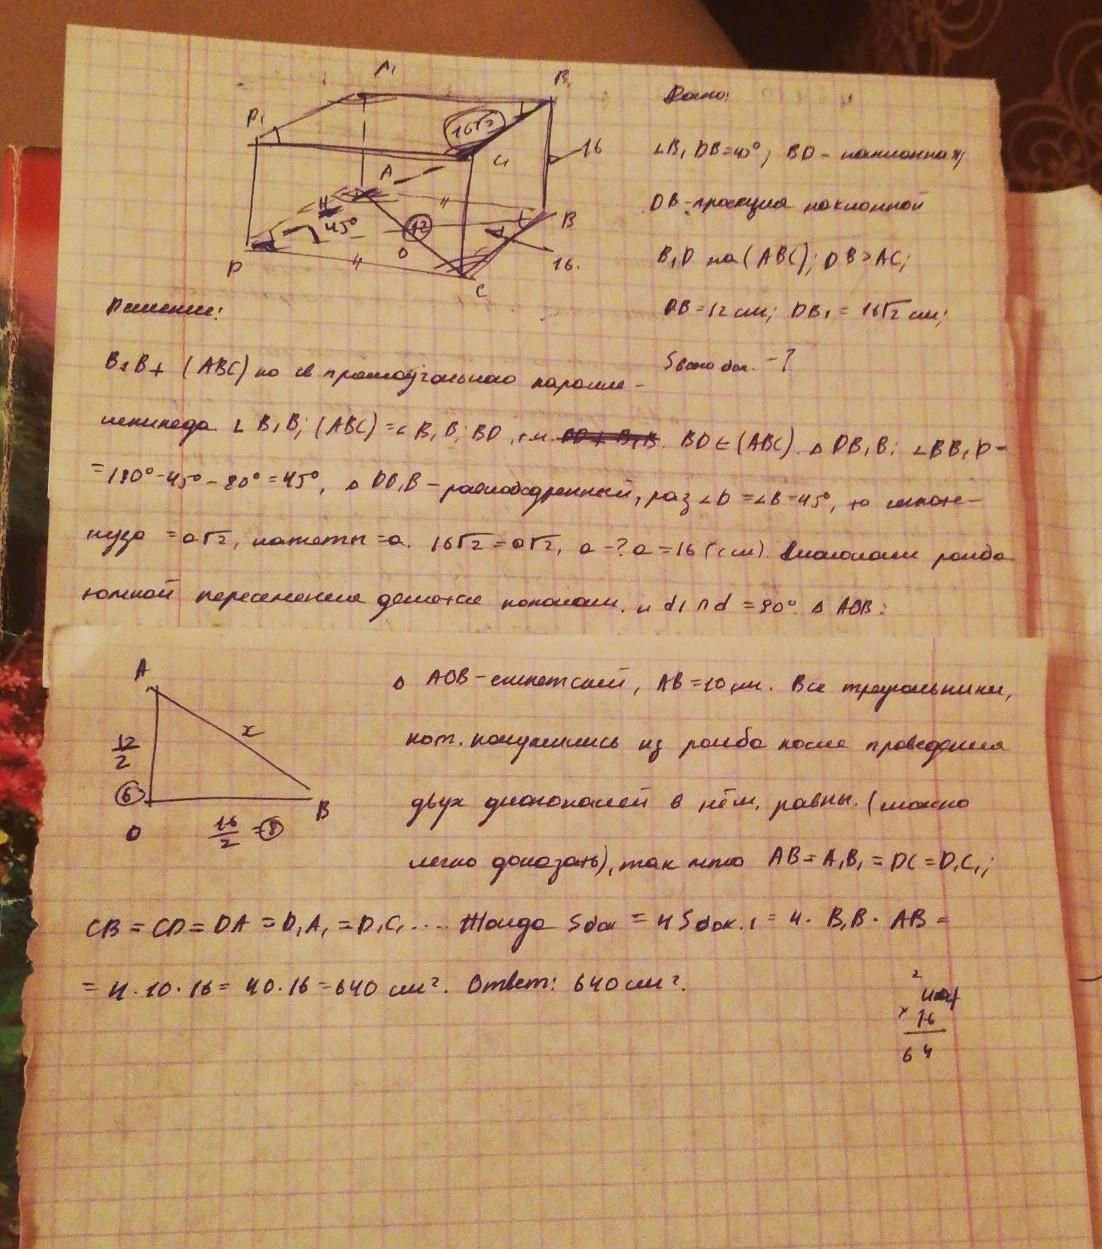 Дано:
∠B₁DB=45°; BD-наклонная;
DB-проекция наклонной
B₁D на (ABC); DB>AC;
DB=12 см; DB₁=16√2 см;
Sвсего бок. -?
A₁
B₁
P₁
16√2
C₁
16
A
H
45°
12
O
B
16.
P
C
Решение:
B₁B⊥ (ABC) по св прямоугольного паралле-
лепипеда. ∠ B₁B; (ABC)=∠B₁B; BD, т.к. BD∈(ABC). △ DB₁B; ∠BB₁D=
=180°-45°-90°=45°, △ DB₁B-равнобедренный, раз ∠D=∠B=45°, то гипоте-
нуза =a√2, катеты =a. 16√2=a√2, a-? a=16 (см). Диагонали ромба
точкой пересечения делятся пополам. и d₁∩d=90°. △ AOB:
A
x
12/2
6
O
16/2 =8
B
△ AOB-египетский, AB=10 см. Все треугольники,
кот. получились из ромба после проведения
двух диагоналей в нём, равны. (можно
легко доказать), так что AB=A₁B₁=DC=D₁C₁;
CB=CD=DA=D₁A₁=D₁C₁.... Тогда Sбок=4Sбок.1=4·B₁B·AB=
=4·10·16=40·16=640 см². Ответ: 640 см².
2
×
16
64